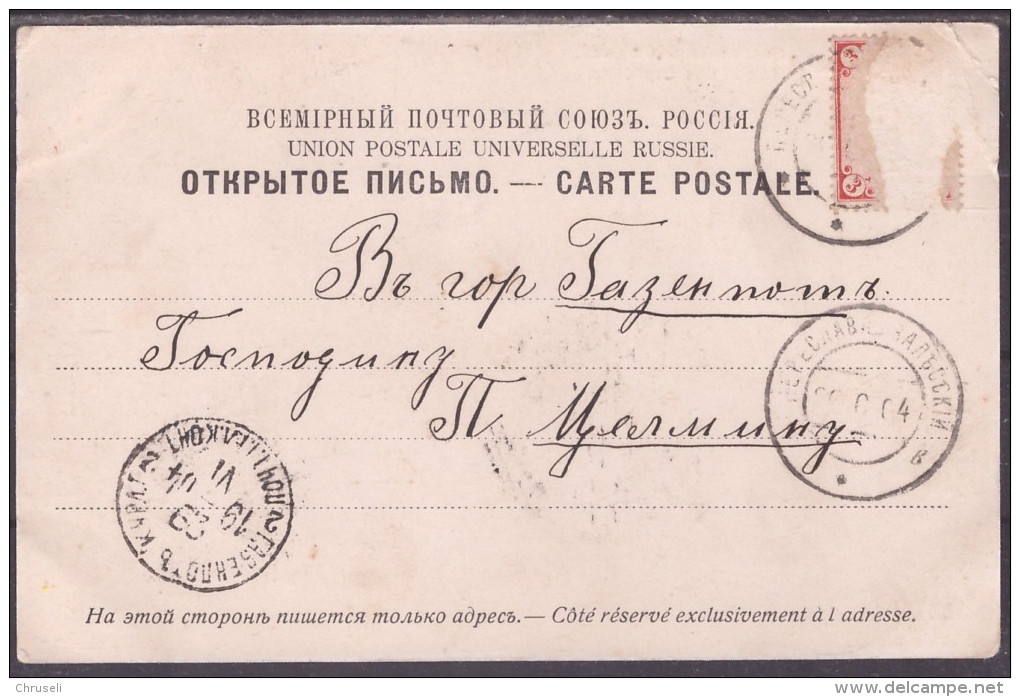 ВСЕМІРНЫЙ ПОЧТОВЫЙ СОЮЗЪ. РОССІЯ.
UNION POSTALE UNIVERSELLE RUSSIE.
ОТКРЫТОЕ ПИСЬМО. — CARTE POSTALE.
3
3
Въ гор Газенпотъ.
Господину
П Целмину
ПЕРЕСЛАВ. ЗАЛѢССКІЙ
6 04
в
ГАЗЕНПОТЪ КУРЛ. Г.
19 VI 04
На этой сторонѣ пишется только адресъ.— Côté réservé exclusivement à l adresse.
Chruseli
delcampe.net